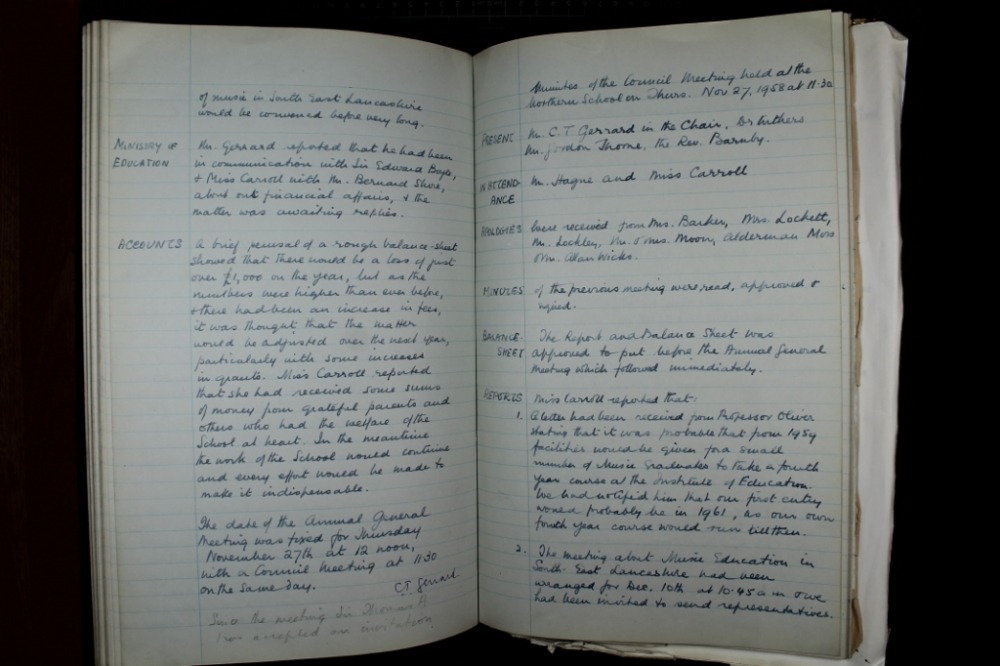 of music in South East Lancashire
would be convened before very long.
MINISTRY OF
EDUCATION
Mr. Gerrard reported that he had been
in communication with Sir Edward Boyle,
& Miss Carroll with Mr. Bernard Shore,
about our financial affairs, & the
matter was awaiting replies.
ACCOUNTS
A brief perusal of a rough balance-sheet
showed that there would be a loss of just
over £1,000 on the year, but as the
numbers were higher than ever before,
& there had been an increase in fees,
it was thought that the matter
would be adjusted over the next year,
particularly with some increases
in grants. Miss Carroll reported
that she had received some sums
of money from grateful parents and
others who had the welfare of the
School at heart. In the meantime
the work of the School would continue
and every effort would be made to
make it indispensable.
The date of the Annual General
Meeting was fixed for Thursday
November 27th at 12 noon,
with a Council Meeting at 11.30
on the same day.
C.T. Gerrard.
the meeting Sir Thomas
has accepted an invitation
Minutes of the Council Meeting held at the
Northern School on Thurs. Nov 27, 1958 at 11.30
PRESENT
Mr. C.T. Gerrard in the Chair, Dr Withers
Mr. Gordon Thorne, the Rev. Barnby.
IN ATTEND-
ANCE
Mr. Hague and Miss Carroll
APOLOGIES
were received from Mrs. Barker, Mrs. Lockett,
Mr. Leckler, Mr. & Mrs. Moon, Alderman Moss
& Mr. Alan Wicks.
MINUTES
of the previous meeting were read, approved &
signed.
BALANCE-
SHEET
The Report and Balance Sheet was
approved to put before the Annual General
Meeting which followed immediately.
REPORTS
Miss Carroll reported that:
1. A letter had been received from Professor Oliver
stating that it was probable that from 1959
facilities would be given for a small
number of Music Graduates to take a fourth
year course at the Institute of Education.
We had notified him that our first entry
would probably be in 1961, as our own
fourth year course would run till then.
2. The meeting about Music Education in
South East Lancashire had been
arranged for Dec. 10th at 10.45 a.m & we
had been invited to send representatives.